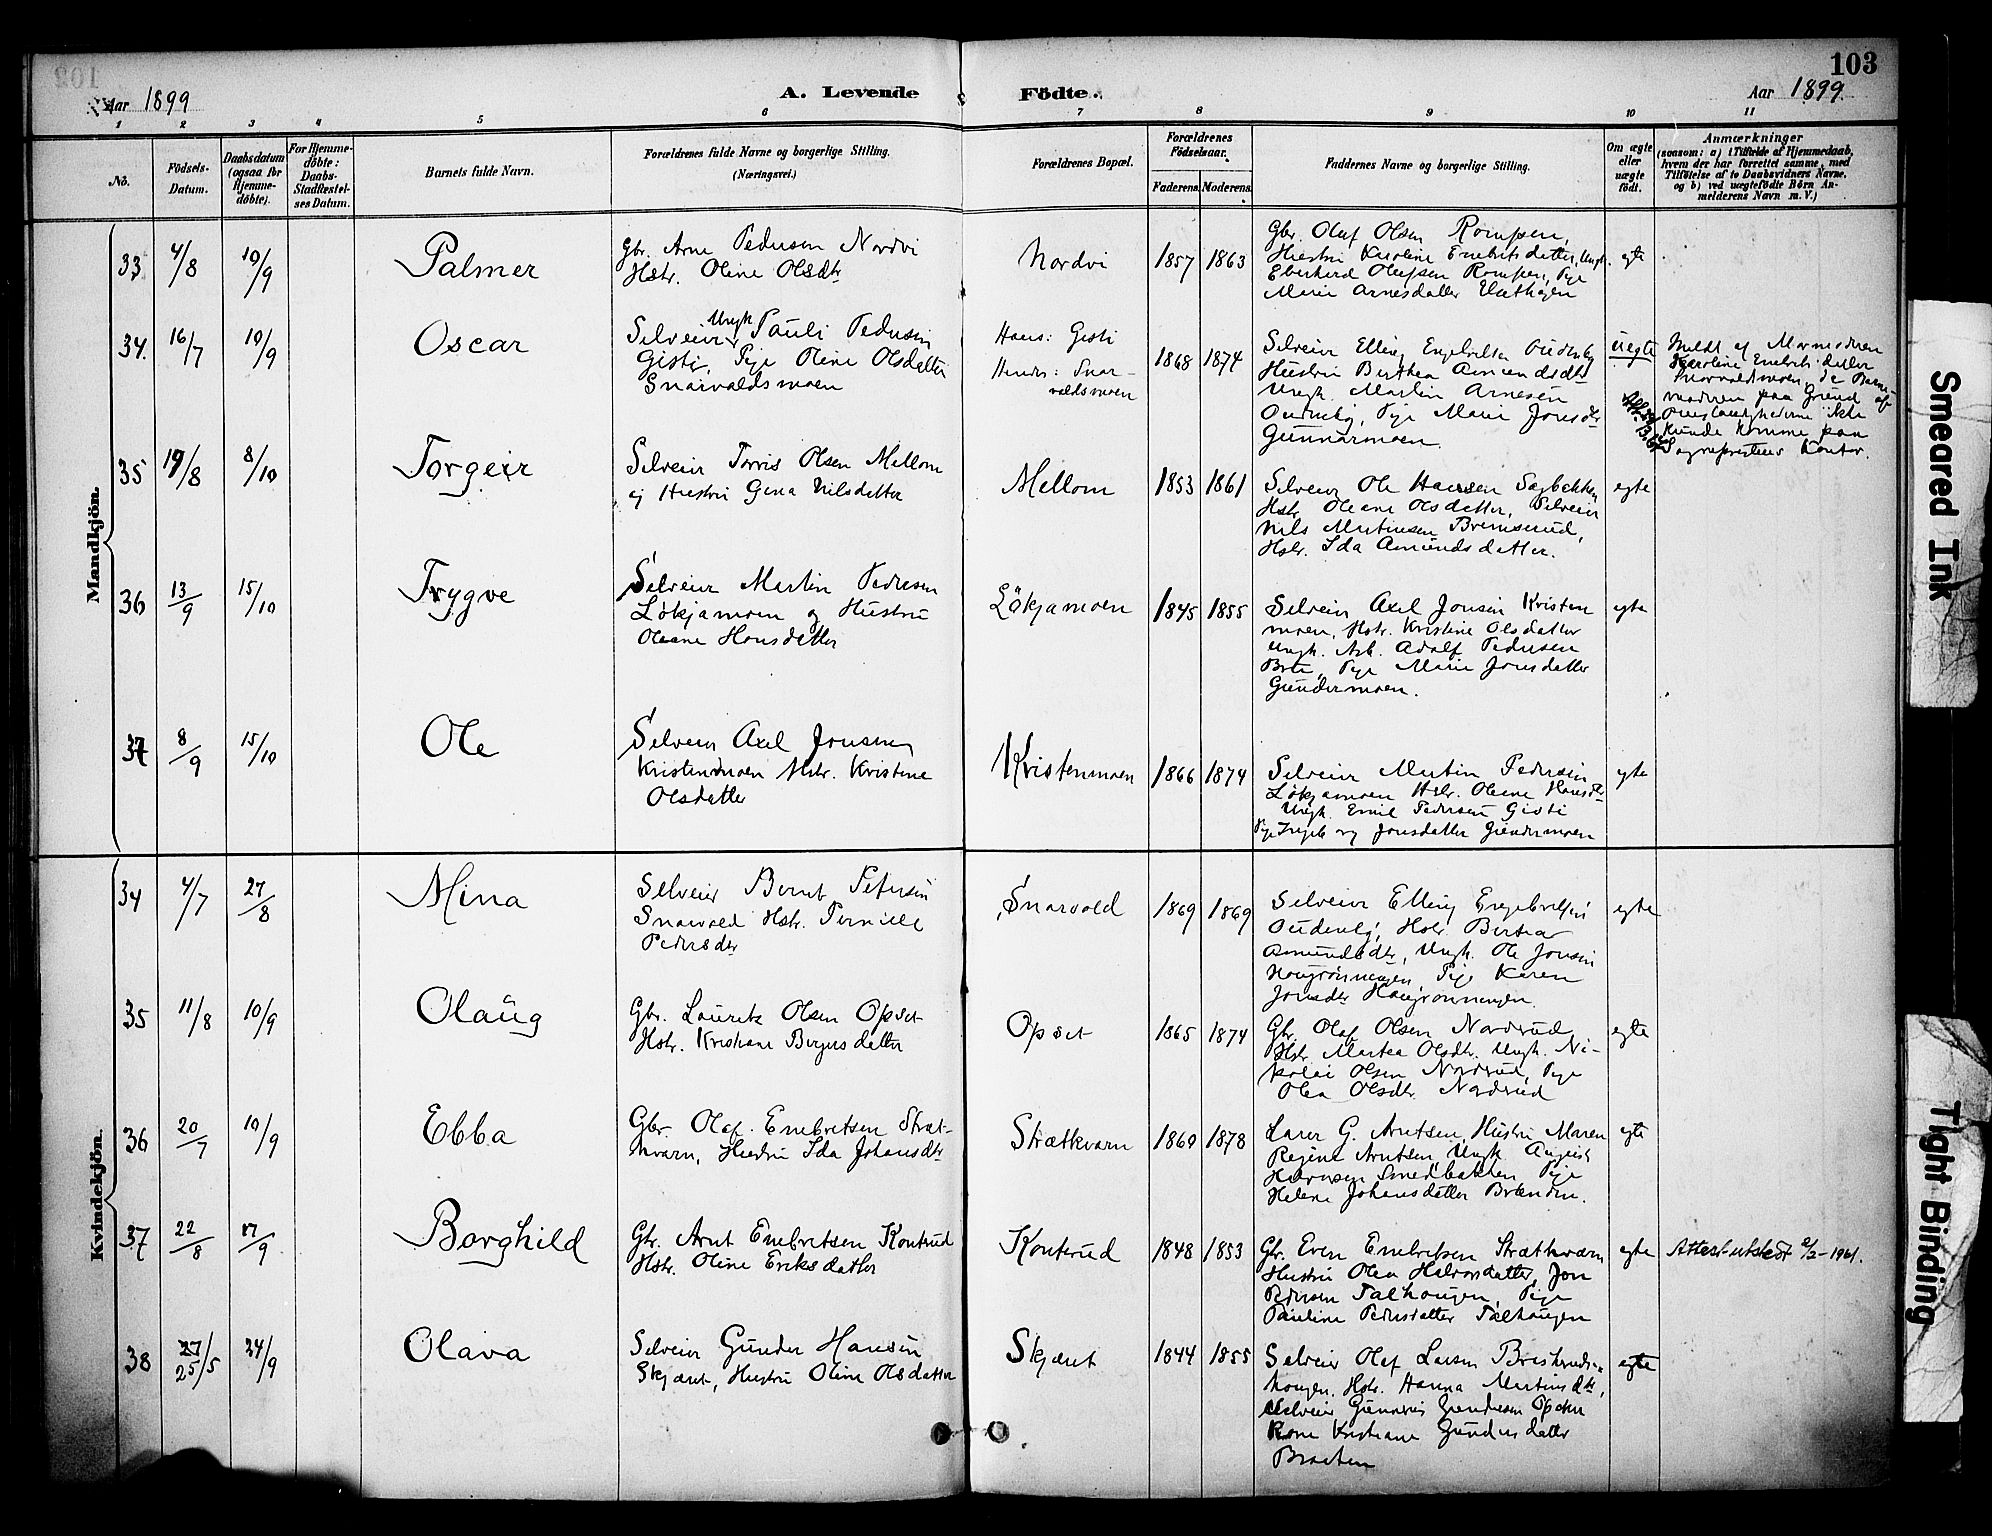 103
Aar 1899
A. Levende
Födte.
Aar 1899
1 2 3 4 5 6 7 8 9 10 11
No.
Födsels-
Datum.
Daabsdatum
(ogsaa for
Hjemme-
døbte).
For Hjemme-
döbte:
Daabs-
Stadfæstel-
ses Datum.
Barnets fulde Navn.
Forældrenes fulde Navne og borgerlige Stilling.
(Næringsvei.)
Forældrenes Bopæl.
Forældrenes
Födselsaar.
Faderens. Moderens.
Faddernes Navne og borgerlige Stilling.
Om ægte
eller
uægte
födt.
Anmærkninger
(saasom: a) i Tilfælde af Hjemmedaab,
hvem der har forrettet samme, med
Tilföielse af to Daabsvidners Navne.
og b) ved uægtefödte Börn An-
melderens Navn m. V.)
Mandkjön.
33 4/8 10/9 Palmer
Gbr. Arne Pedersen Nordvi
Hstr. Oline Olsdtr
Nordvi 1857 1863
Gbr. Olaf Olsen Rompen,
Hustru Karoline Enebrits datter, Ungk.
Eberhard Olufsen Rompen, Pige
Marie Arnesdatter
egte
34. 16/7 10/9 Oscar
Selveier Ungk Pauli Pedersen
Gisti, Pige Oline Olsdatter
Snarvaldsmoen
Hans: Gisti
Hendes: Snar-
valdsmoen
1868 1874
Selveier Elling Engebretsen Oudenby
Hustru Berthea Amundsdtr
Ungk. Martin Arnesen
Oudenby, Pige Marie Jonsdtr
Gunnarmoen.
uegte
Meldt af Mormoderen
Karoline Enebrits datter
Snarvaldsmoen, da Barne-
moderen paa Grund af
Omstændighederne ikke
kunde komme paa
Sognepræstens Kontor.
35 19/8 8/10 Torgeir
Selveier Torris Olsen Mellom
og Hustru Gina Nilsdatter
Mellom 1853 1861
Selveier Ole Hansen Sagbakken
Hstr. Oleane Olsdatter, Selveier
Nils Martinsen Bremserud,
Hstr. Ida Amunds datter.
egte
36 13/9 15/10 Trygve
Selveier Martin Pedersen
Lökjamoen og Hustru
Oleane Hansdatter
Lökjamoen 1845 1855
Selveier Axel Jonsen Kristen
moen, Hstr. Kristine Olsdatter
Ungk. Arb. Adolf Pedersen
Bræ, Pige Marie Jonsdatter
Gundermoen.
egte
37 8/9 15/10 Ole
Selveier Axel Jonsen
Kristenmoen Hstr. Kristine
Olsdatter
Kristenmoen 1866 1874
Selveier Martin Pedersen
Lökjamoen Hstr. Oleane Hansdtr
Ungk. Emil Pedersen Gisti
Pige Ingeborg Jonsdatter Gundermoen
egte
Kvindekjön.
34 4/7 27/8 Mina
Selveier Bernt Petersen
Snarvold Hstr. Pernille
Pedersdtr
Snarvold 1869 1869
Selveier Elling Engebretsen
Oudenby, Hstr. Berthea
Amundsdtr, Ungk. Ole Jonsen
Haugrönningen, Pige Karen
Jonsdtr Haugrønningen.
egte
35 11/8 10/9 Olaug
Gbr. Lauritz Olsen Opset
Hstr. Kristiane Birgersdatter
Opset 1865 1874
Gbr. Olaf Olsen Nordrud
Hstr. Martea Olsdtr. Ungk. Ni-
kolai Olsen Nordrud, Pige
Olea Olsdtr. Nordrud
egte
36 20/7 10/9 Ebba
Gbr. Olaf Enebretsen Stræt-
kvarn, Hustru Ida Johansdtr
Strætkvarn 1860 1878
Larer G. Arntsen, Hustru Maren
Regine Arntsen Ungk August
Halvorsen Smedbakken Pige
Helene Johansdatter Brænden.
egte
37 22/8 17/9 Borghild
Gbr. Arnt Enebretsen Konterud
Hstr. Oline Eriksdatter
Konterud 1848 1853
Gbr. Even Enebretsen Strætkvarn
Hustru Olea Halvorsdatter, Jon
Pedersen Talhaugen, Pige
Pauline Pedersdatter Talhaugen
egte
Attest utstedt 2/2-1961.
38 27 25/5 24/9 Olava
Selveier Gunder Hansen
Skjæret, Hustru Oline Olsdatter
Skjæret 1844 1855
Selveier Olaf Larsen Briskeruds-
haugen. Hstr. Hanna Martinsdtr,
Selveier Gunnerius Gundersen
Kone Kristiane Gundersdatter
Braaten
egte
Smeared Ink
Tight Binding